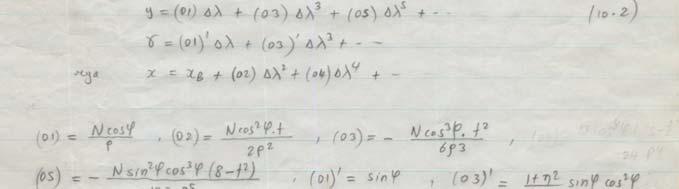 y = (01) Δλ + (03) Δλ³ + (05) Δλ⁵ + -- (10.2)
γ = (01)' Δλ + (03)' Δλ³ + --
x = x_B + (02) Δλ² + (04) Δλ⁴ + -
(01) = Ncosφ/ρ , (02) = Ncos²φ.t/2ρ² , (03) = - Ncos³φ.t²/6ρ3 ,
(05) = - Nsin²φcos³φ(8-t²) , (01)' = sinφ , (03)' = 1+η² sinφ cos²φ